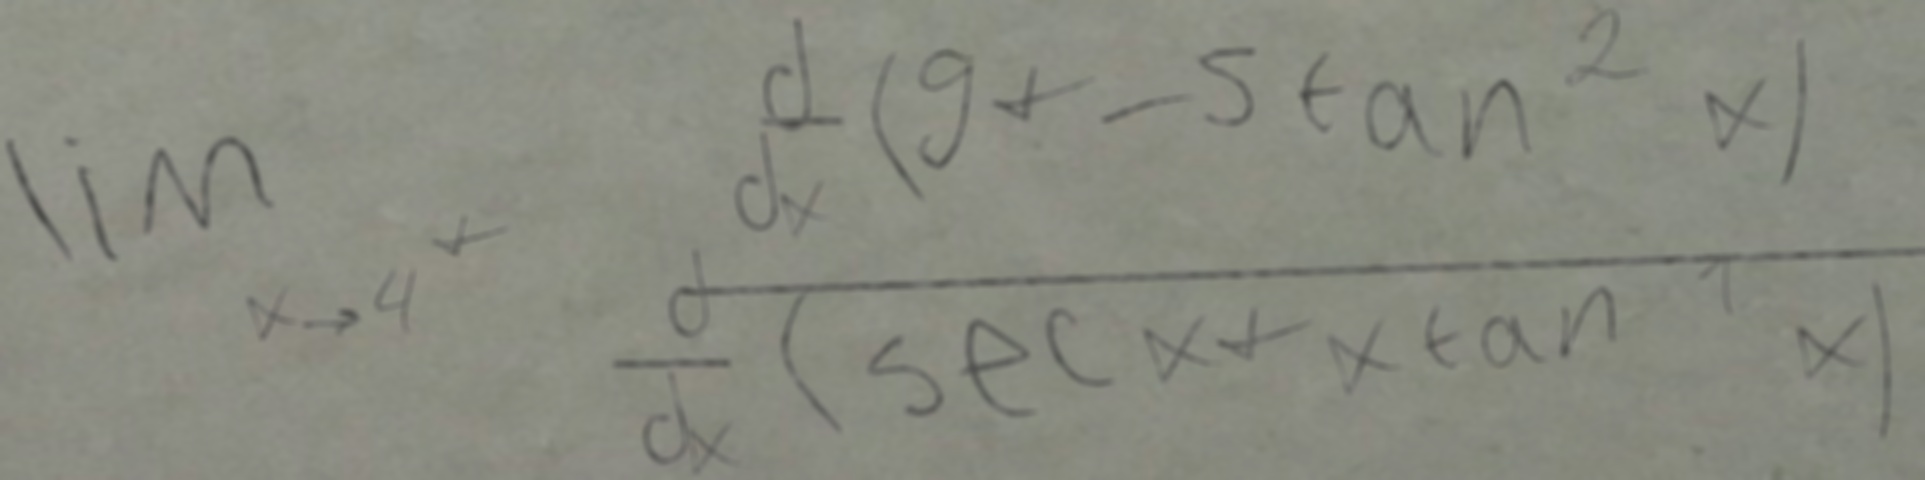 \lim_{x \to 4^+} \frac{\frac{d}{dx}(9 + -5 \tan^2 x)}{\frac{d}{dx}(\sec x + x \tan^1 x)}